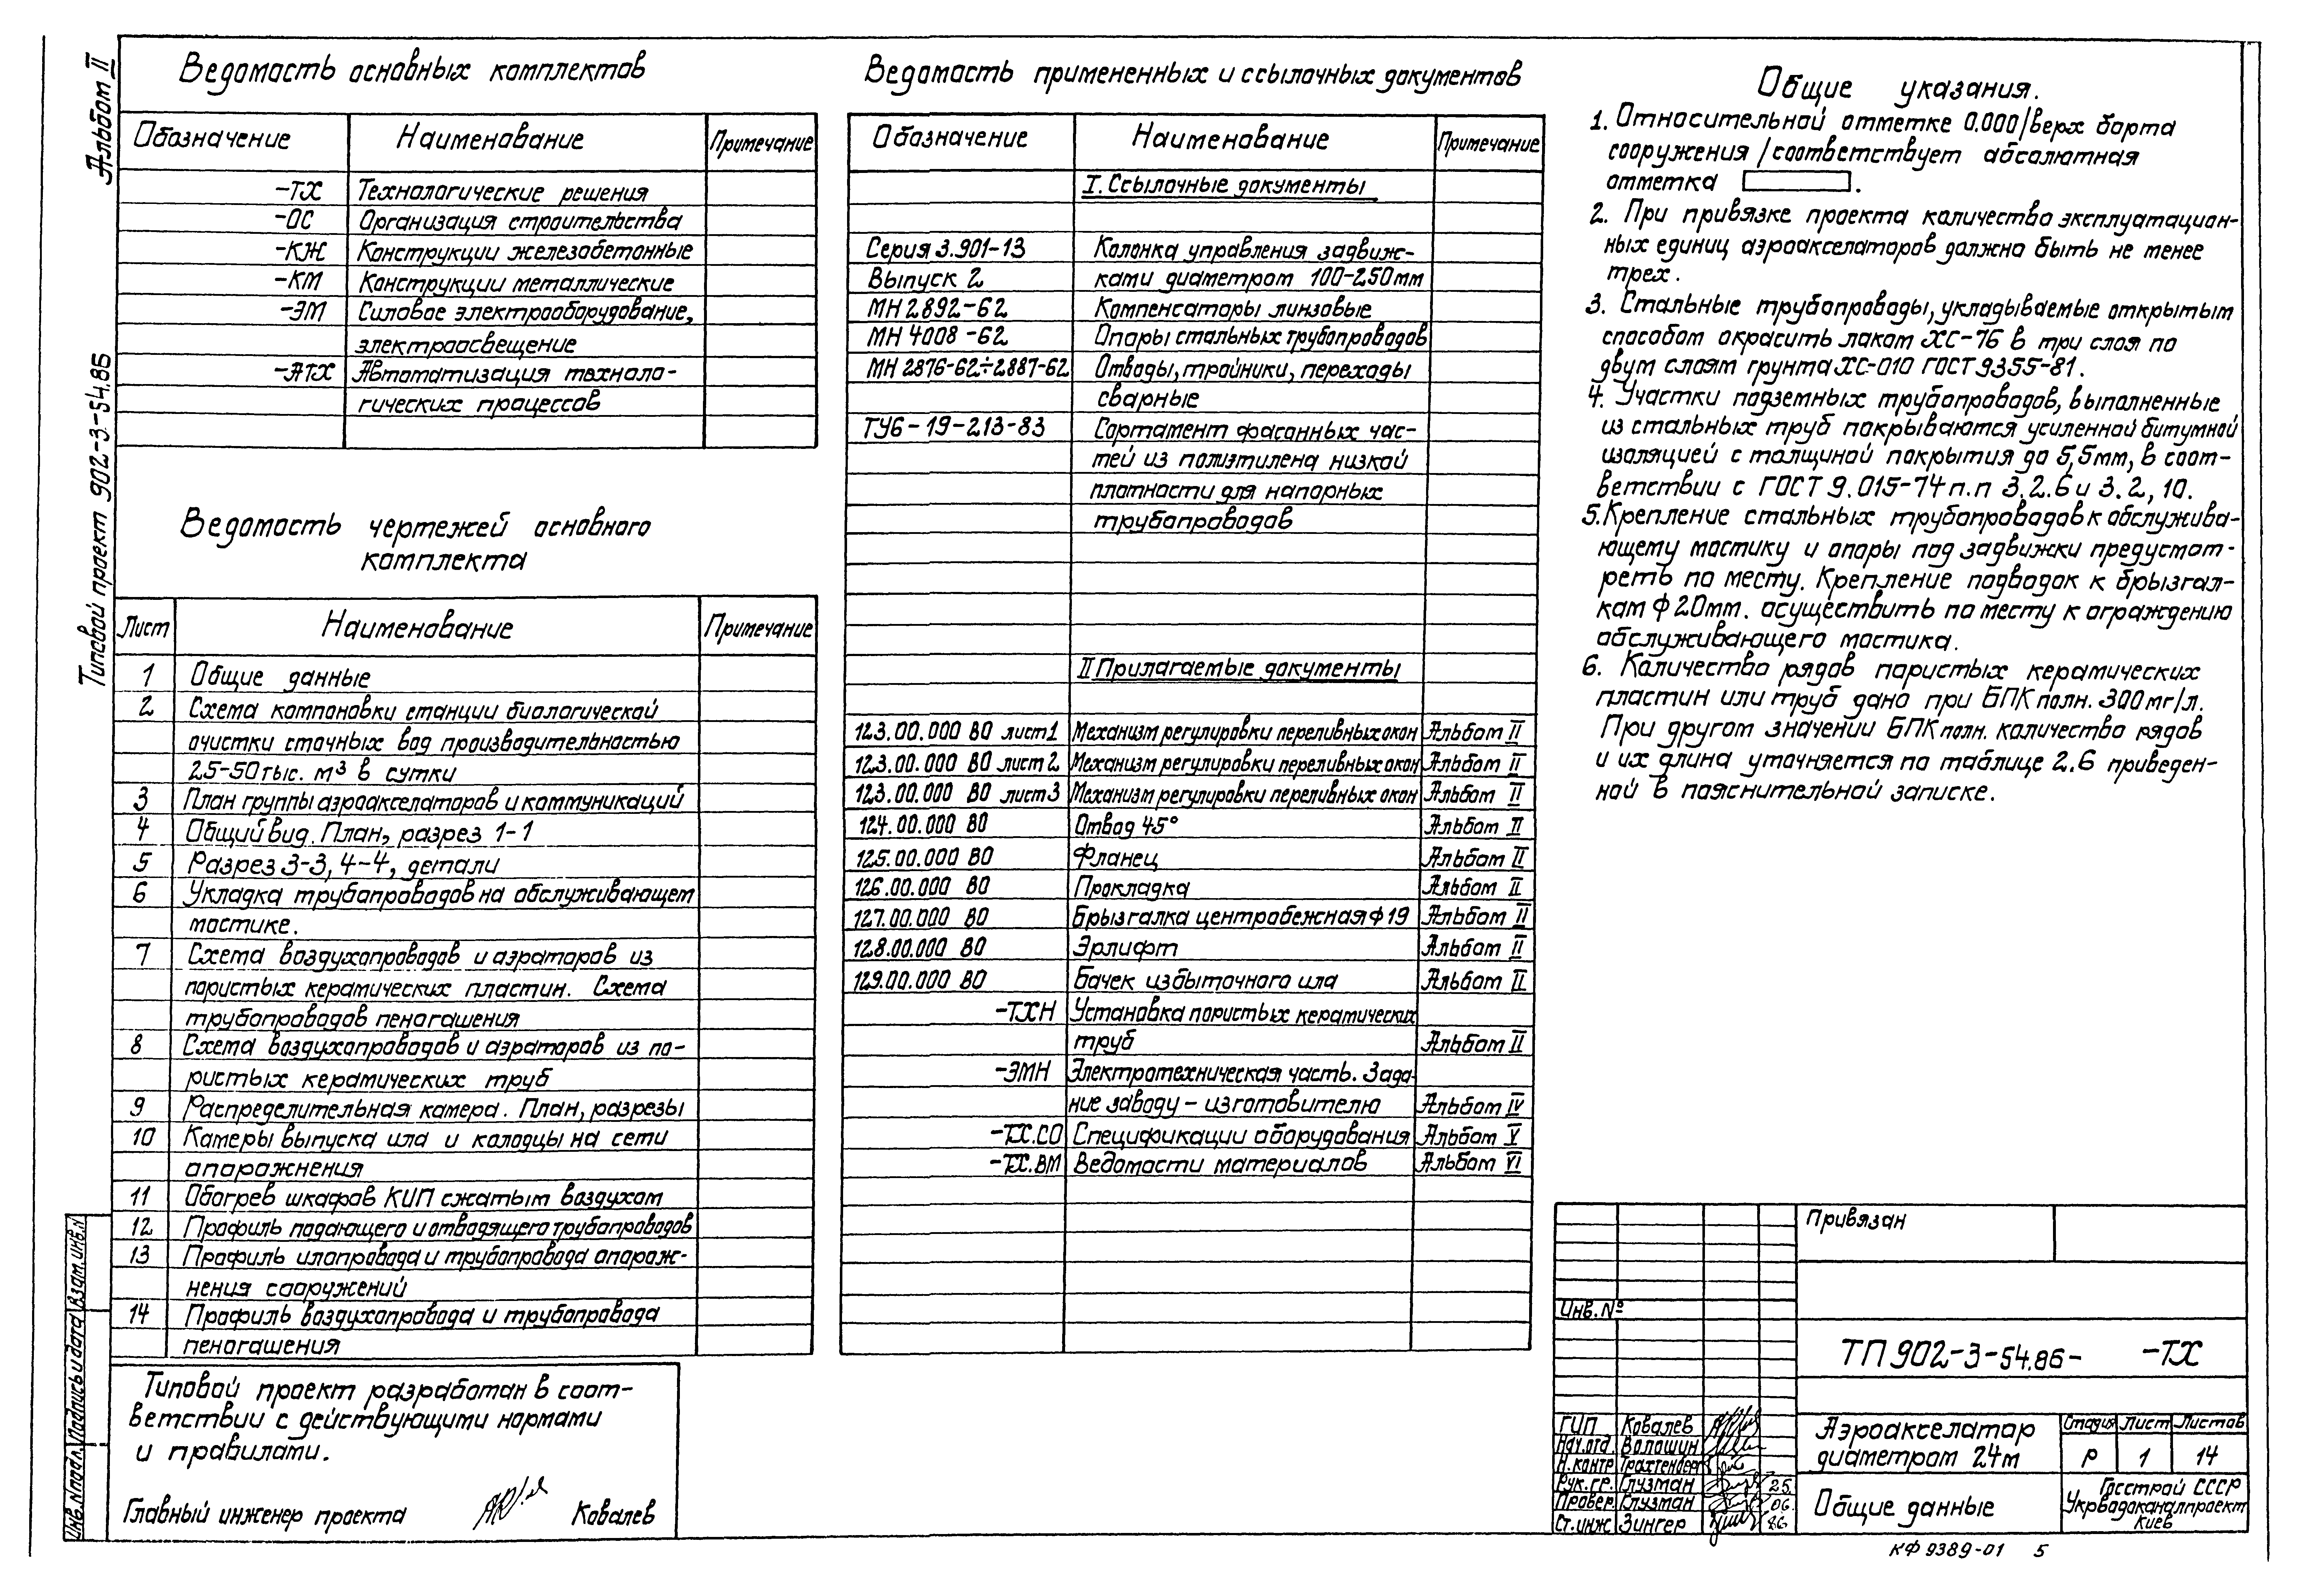 Альбом II
Типовой проект 902-3-54.86
Ведомость основных комплектов
Обозначение Наименование Примечание
-ТХ Технологические решения
-ОС Организация строительства
-КЖ Конструкции железобетонные
-КМ Конструкции металлические
-ЭМ Силовое электрооборудование,
электроосвещение
-АТХ Автоматизация техноло-
гических процессов
Ведомость чертежей основного
комплекта
Лист Наименование Примечание
1 Общие данные
2 Схема компоновки станции биологической
очистки сточных вод производительностью
25-50 тыс. м³ в сутки
3 План группы аэроакселаторов и коммуникаций
4 Общий вид. План, разрез 1-1
5 Разрез 3-3, 4-4, детали
6 Укладка трубопроводов на обслуживающем
мостике.
7 Схема воздухопроводов и аэраторов из
пористых керамических пластин. Схема
трубопроводов пеногашения
8 Схема воздухопроводов и аэраторов из по-
ристых керамических труб
9 Распределительная камера. План, разрезы
10 Камеры выпуска ила и колодцы на сети
опоражнения
11 Обогрев шкафов КИП сжатым воздухом
12 Профиль подающего и отводящего трубопроводов
13 Профиль илопровода и трубопровода опораж-
нения сооружений
14 Профиль воздухопровода и трубопровода
пеногашения
Типовой проект разработан в соот-
ветствии с действующими нормами
и правилами.
Главный инженер проекта Ковалев
Ведомость примененных и ссылочных документов
Обозначение Наименование Примечание
I. Ссылочные документы
Серия 3.901-13 Колонка управления задвиж-
Выпуск 2 ками диаметром 100-250мм
МН 2892-62 Компенсаторы линзовые
МН 4008-62 Опоры стальных трубопроводов
МН 2876-62÷2887-62 Отводы, тройники, переходы
сварные
ТУ6-19-213-83 Сортамент фасонных час-
тей из полиэтилена низкой
плотности для напорных
трубопроводов
II Прилагаемые документы
123.00.000 ВО лист 1 Механизм регулировки переливных окон Альбом II
123.00.000 ВО лист 2 Механизм регулировки переливных окон Альбом II
123.00.000 ВО лист 3 Механизм регулировки переливных окон Альбом II
124.00.000 ВО Отвод 45° Альбом II
125.00.000 ВО Фланец Альбом II
126.00.000 ВО Прокладка Альбом II
127.00.000 ВО Брызгалка центробежная ф19 Альбом II
128.00.000 ВО Эрлифт Альбом II
129.00.000 ВО Бачек избыточного ила Альбом II
-ТХН Установка пористых керамических
труб Альбом II
-ЭМН Электротехническая часть. Зада-
ние заводу - изготовителю Альбом IV
-ТХ.СО Спецификации оборудования Альбом V
-ТХ.ВМ Ведомости материалов Альбом VI
Общие указания.
1. Относительной отметке 0.000 /верх борта
сооружения / соответствует абсолютная
отметка .
2. При привязке проекта количество эксплуатацион-
ных единиц аэроакселаторов должно быть не менее
трех.
3. Стальные трубопроводы, укладываемые открытым
способом окрасить лаком ХС-76 в три слоя по
двум слоям грунта ХС-010 ГОСТ 9355-81.
4. Участки подземных трубопроводов, выполненные
из стальных труб покрываются усиленной битумной
изоляцией с толщиной покрытия до 5,5мм, в соот-
ветствии с ГОСТ 9.015-74 п.п 3.2.6 и 3.2,10.
5. Крепление стальных трубопроводов к обслужива-
ющему мостику и опоры под задвижки предусмот-
реть по месту. Крепление подводок к брызгал-
кам ф 20мм. осуществить по месту к ограждению
обслуживающего мостика.
6. Количество рядов пористых керамических
пластин или труб дано при БПК полн. 300мг/л.
При другом значении БПК полн. количество рядов
и их длина уточняется по таблице 2.6 приведен-
ной в пояснительной записке.
Привязан
Инв. №
ТП 902-3-54.86- -ТХ
ГИП Ковалев
Нач.отд. Волошин
Н.контр Трахтенберг
Рук.гр. Глузман 25.
Провер. Глузман 06.
Ст.инж Зингер 86
Аэроакселатор
диаметром 24м
Стадия Лист Листов
Р 1 14
Общие данные
Госстрой СССР
Укрводоканалпроект
Киев
КФ 9389-01 5
Инв.N подл. Подпись и дата Взам.инв.N